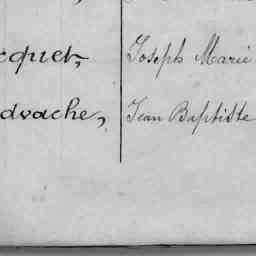 cquet, Joseph Marie
dvache, Jean Baptiste